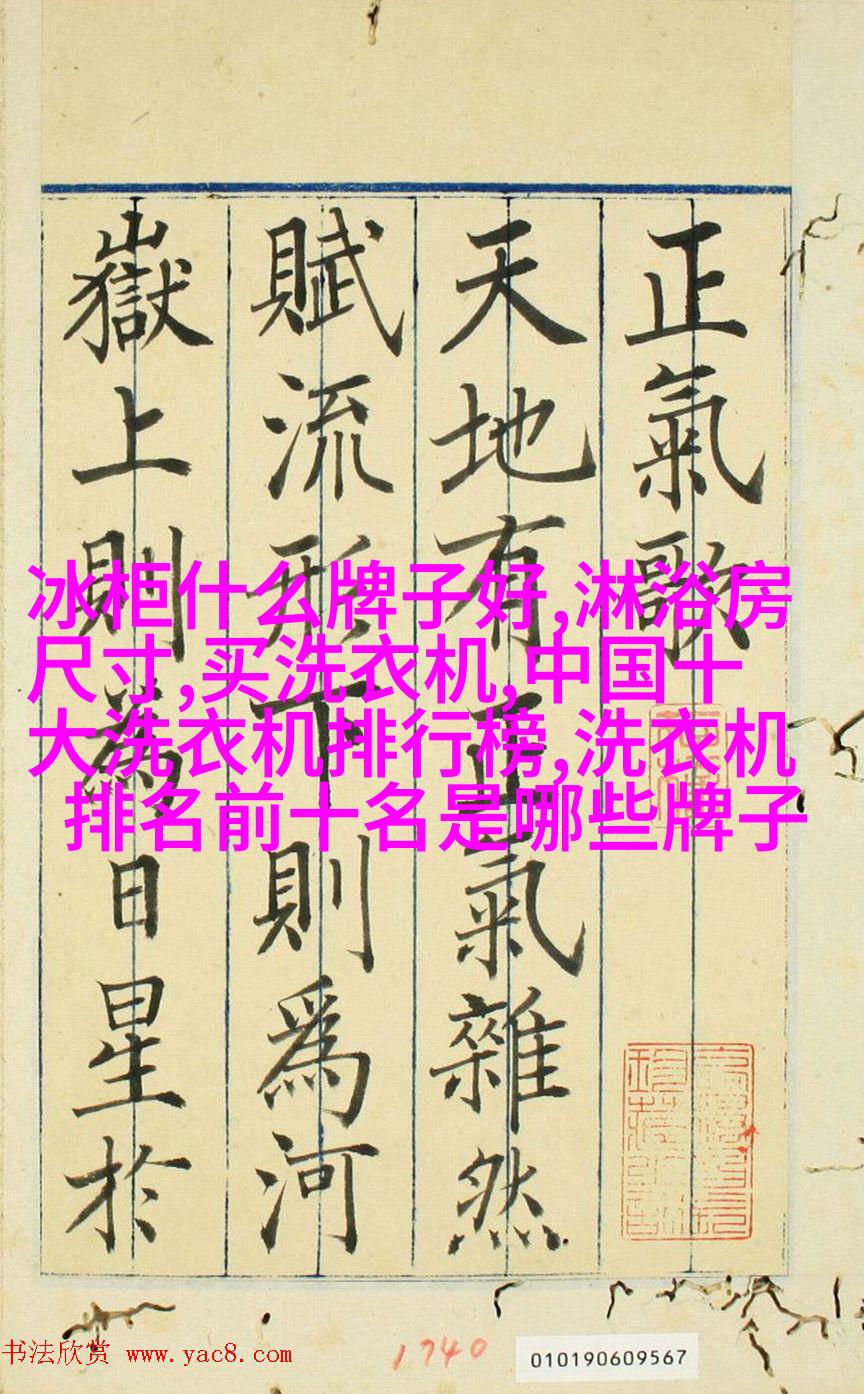 正氣歌
天地有正氣雜然
賦流形下則為河
嶽上則為日星於
冰柜什么牌子好,淋浴房
尺寸,买洗衣机,中国十
大洗衣机排行榜,洗衣机
排名前十名是哪些牌子
书法欣赏 www.yac8.com
1740
010190609567